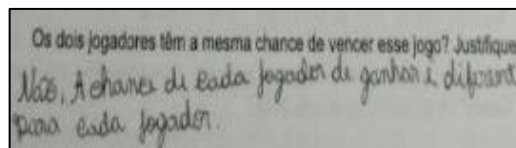 Os dois jogadores têm a mesma chance de vencer esse jogo? Justifique
Não, A chance de cada jogador de ganhar é diferent
para cada jogador.